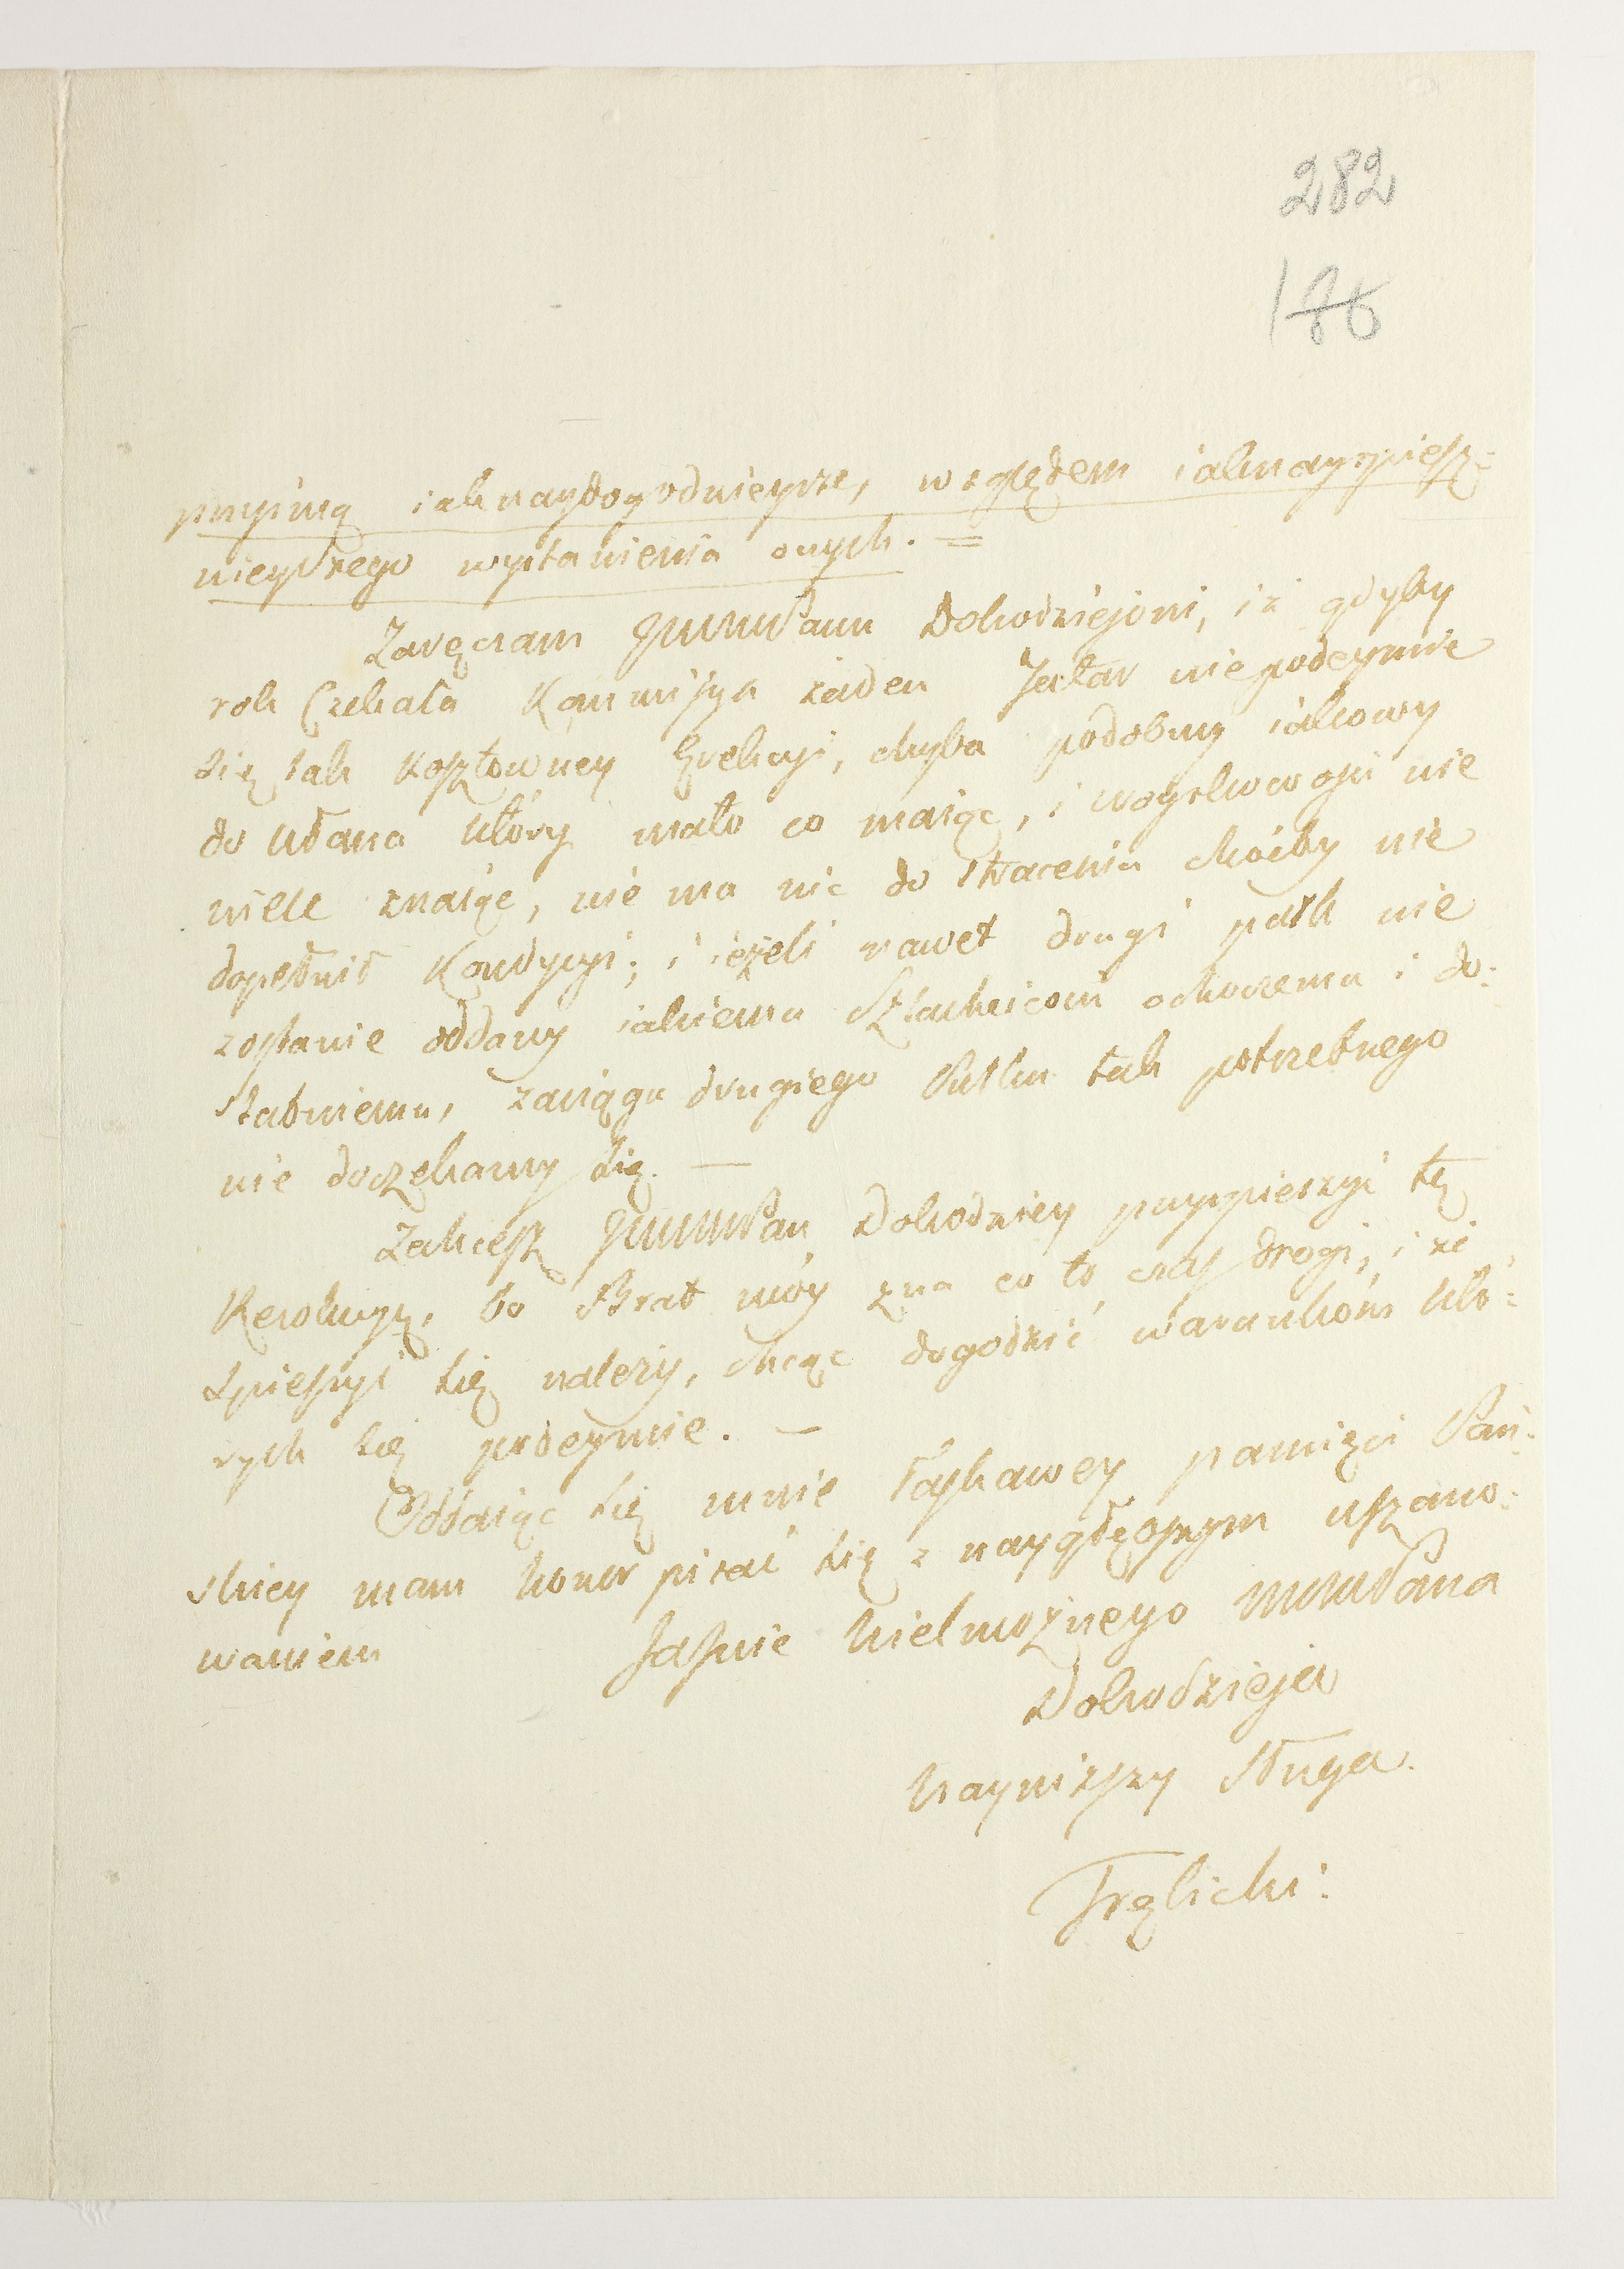 282
186
przyimą iaknaydogodnieysze, względem iaknayspiesz:
nieyszego wystawienia onych. =
Zaręczam JWWMPanu Dobrodziejowi, iż gdyby
rok Czekała Kommisya żaden Tatar niepodeymie
się tak kosztowney Erekcyi, chyba podobny iakowy
do Ułana który mało co maiąc, i woyskowości nie
wiele znaiąc, nie ma nic do stracenia choćby nie
dopełnił Kondycyi; i ieżeli nawet drugi pułk nie
zostanie oddany iakiemu Szlachcicowi ochoczemu i do:
statniemu, zaciągu drugiego Pułku tak potrzebnego
nie doczekamy się. —
Zechcesz JWWMPan Dobrodziey przyspieszyć tę
Rezolucyę, bo Brat móy zna co to czas drogi, i że
spieszyć się należy, chcąc dogodzić warunkóm któ:
rych się podeymie. —
Oddaiąc się mnie łaskawey pamięci Pań:
skiey mam honor pisać się z naygłębszym uszano:
waniem Jaśnie Wielmożnego WMMPana
Dobrodzieja
Nayniższy Sługa.